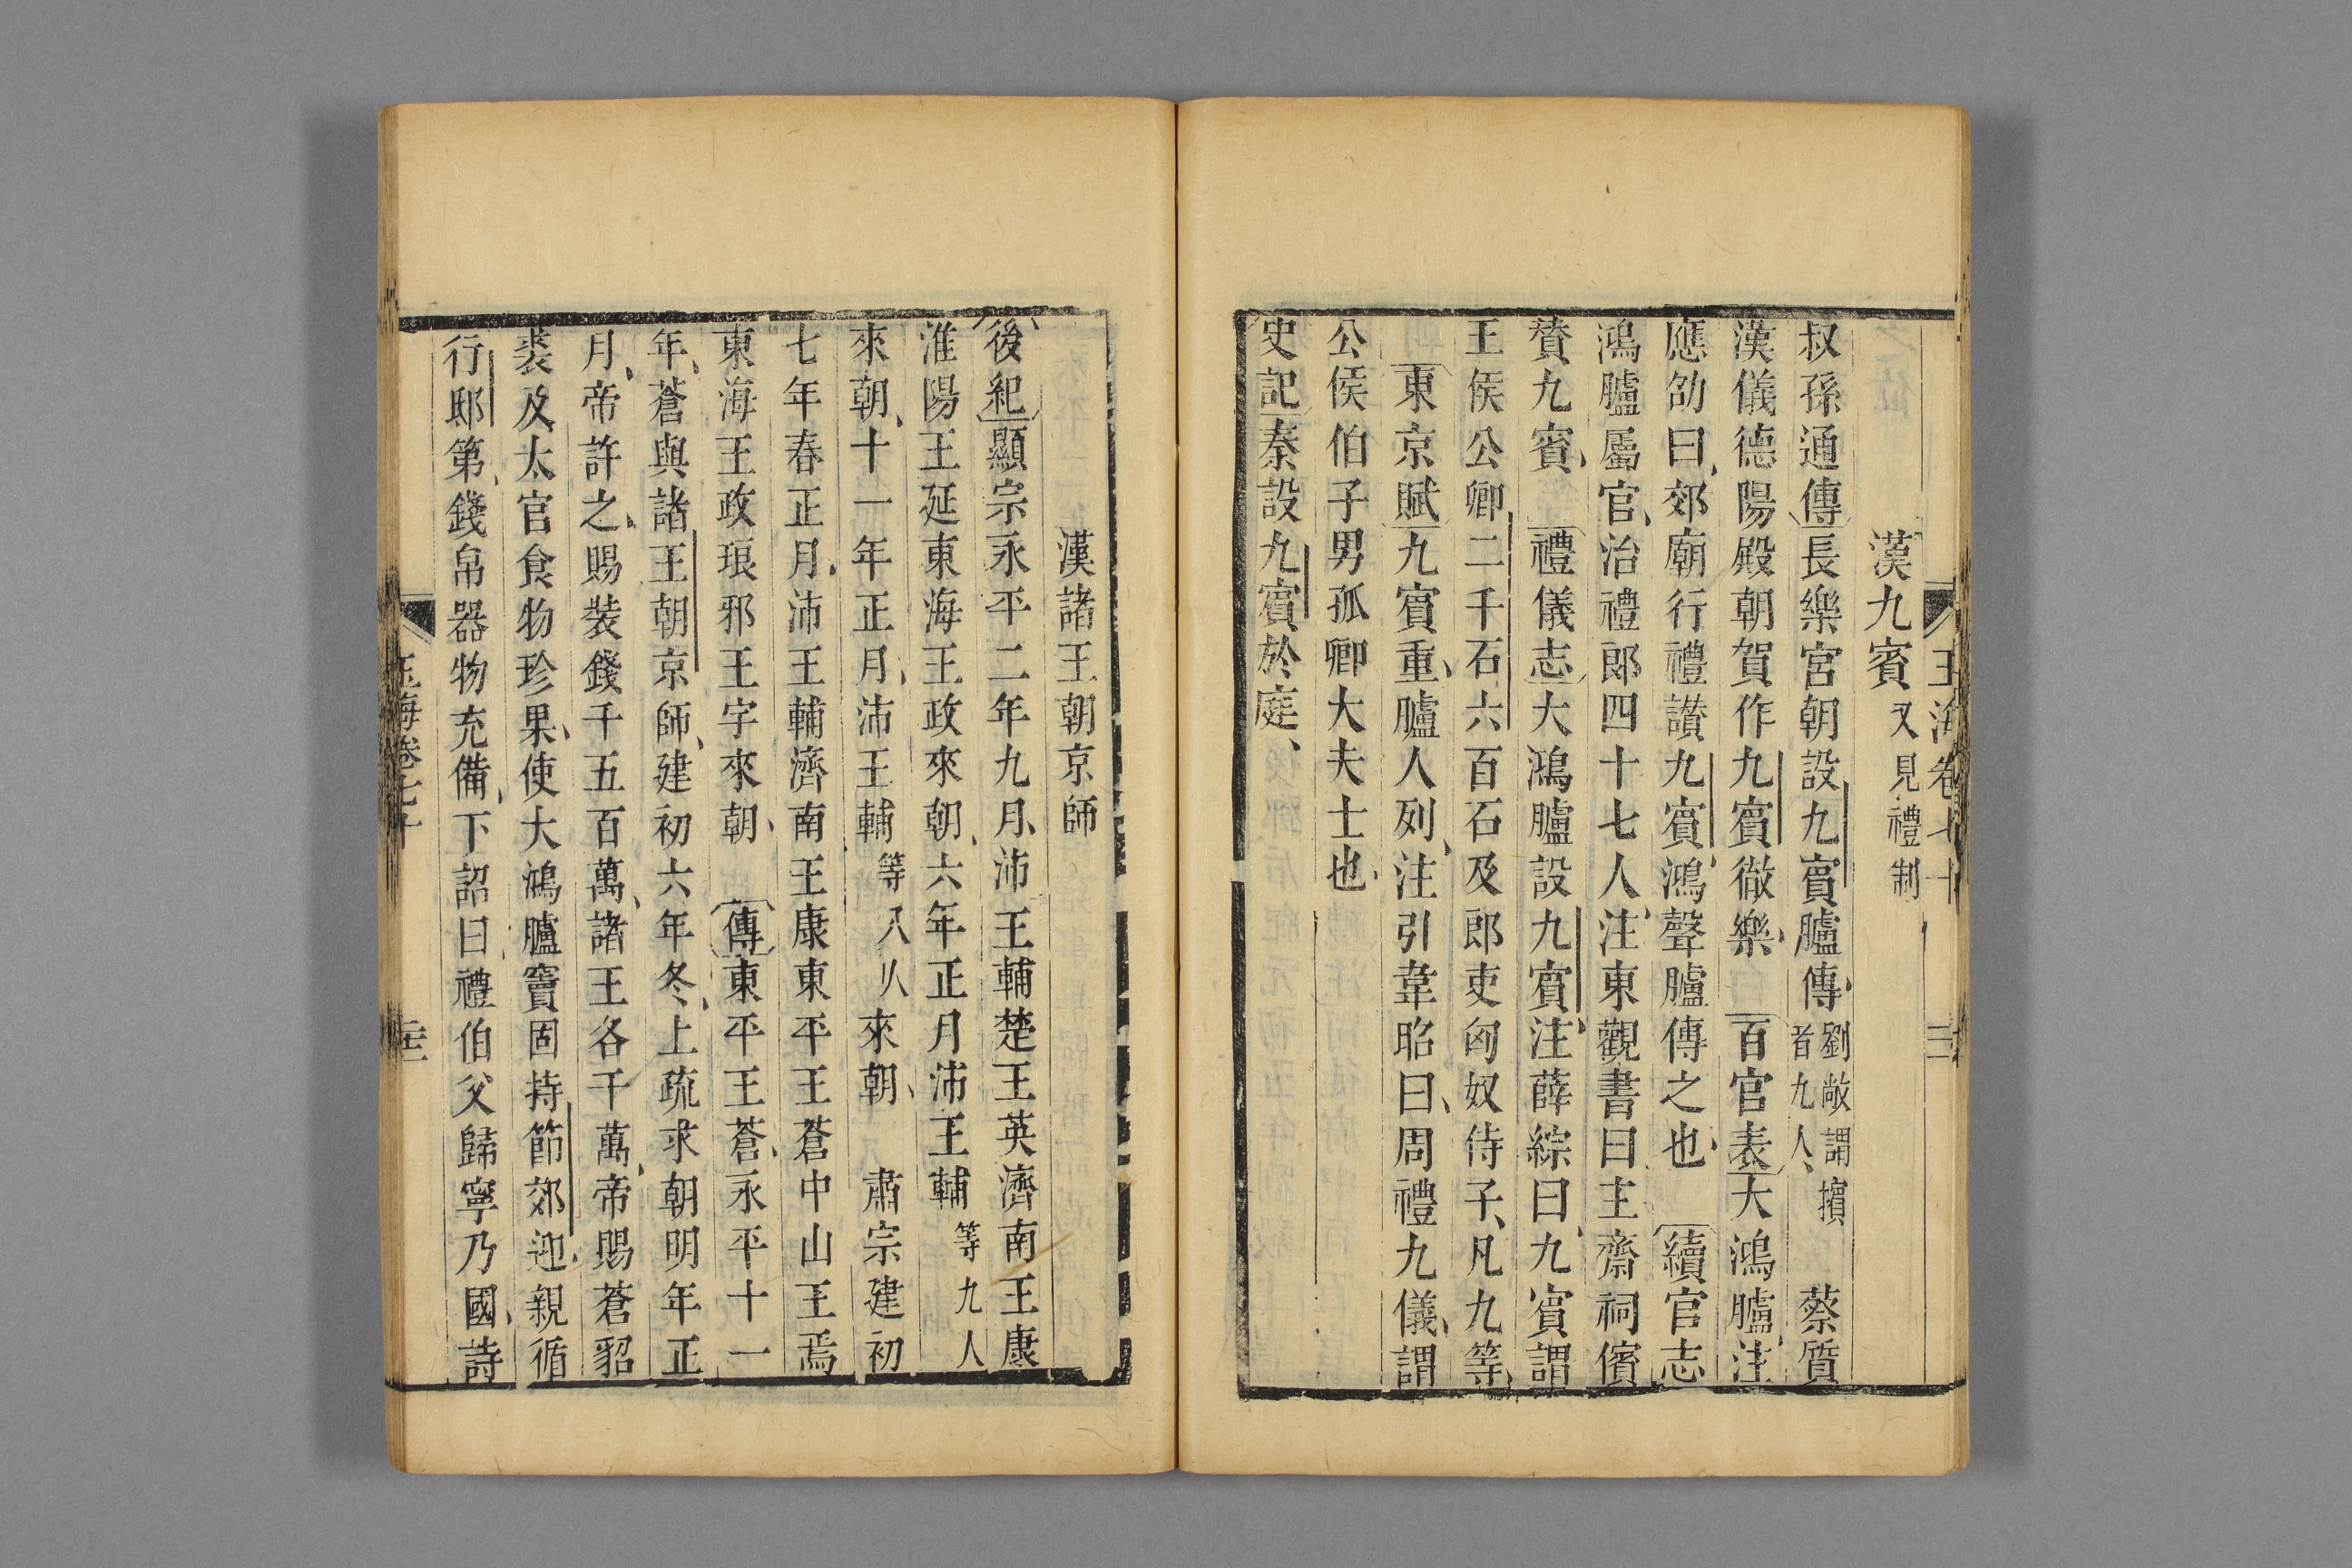 玉海卷七十
漢九賓又見禮制
叔孫通傳長樂宮朝設九賓臚傳劉敞謂擯者九人、蔡質
漢儀德陽殿朝賀作九賓徹樂、百官表大鴻臚注
應劭曰、郊廟行禮讚九賓、鴻聲臚傳之也、續官志
鴻臚屬官、治禮郎四十七人、注東觀書曰主齋祠儐
贊九賓、禮儀志大鴻臚設九賓、注薛綜曰、九賓謂
王侯公卿二千石六百石及郎吏匈奴侍子、凡九等、
東京賦九賓重、臚人列、注引韋昭曰、周禮九儀、謂
公侯伯子男孤卿大夫士也、
史記秦設九賓於庭、
漢諸王朝京師
後紀顯宗永平二年九月、沛王輔楚王英濟南王康
淮陽王延東海王政來朝、六年正月沛王輔等九人
來朝、十一年正月、沛王輔等八人來朝、肅宗建初
七年春正月、沛王輔濟南王康東平王蒼中山王焉
東海王政琅邪王宇來朝、傳東平王蒼、永平十一
年、蒼與諸王朝京師、建初六年冬、上疏求朝明年正
月、帝許之、賜裝錢千五百萬、諸王各千萬、帝賜蒼貂
裘及太官食物珍果、使大鴻臚竇固持節郊迎、親循
行邸第、錢帛器物充備、下詔曰、禮伯父歸寧乃國、詩
玉海卷七十